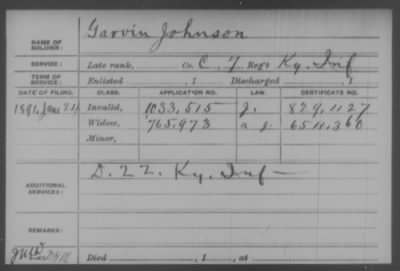 NAME OF SOLDIER: Garvin Johnson
SERVICE: Late rank, Co. C, 7 Reg't Ky. Inf
TERM OF SERVICE: Enlisted , 1 Discharged , 1
DATE OF FILING. CLASS. APPLICATION NO. LAW. CERTIFICATE NO.
1891, June 24 Invalid, 1033,515 J. 829,1127
Widow, 765,973 a J. 654,360
Minor,
ADDITIONAL SERVICES: D. 22. Ky. Inf
REMARKS:
Died , 1 , at